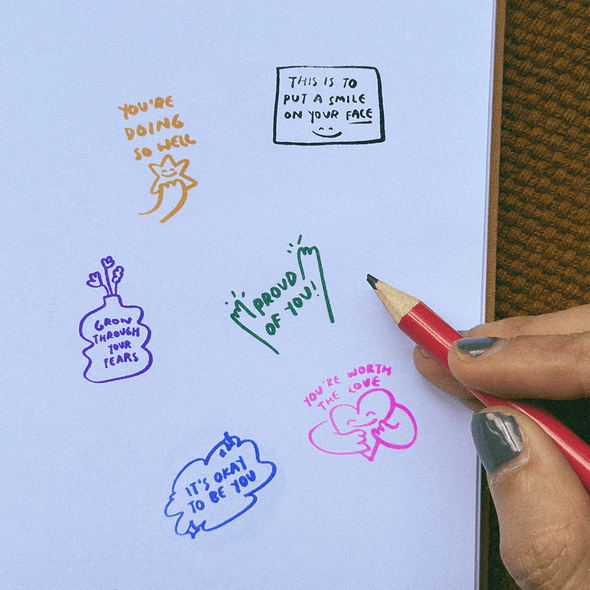 YOU'RE
DOING
SO WELL
THIS IS TO
PUT A SMILE
ON YOUR FACE
PROUD
OF YOU!
GROW
THROUGH
YOUR
FEARS
YOU'RE WORTH
THE LOVE
IT'S OKAY
TO BE YOU